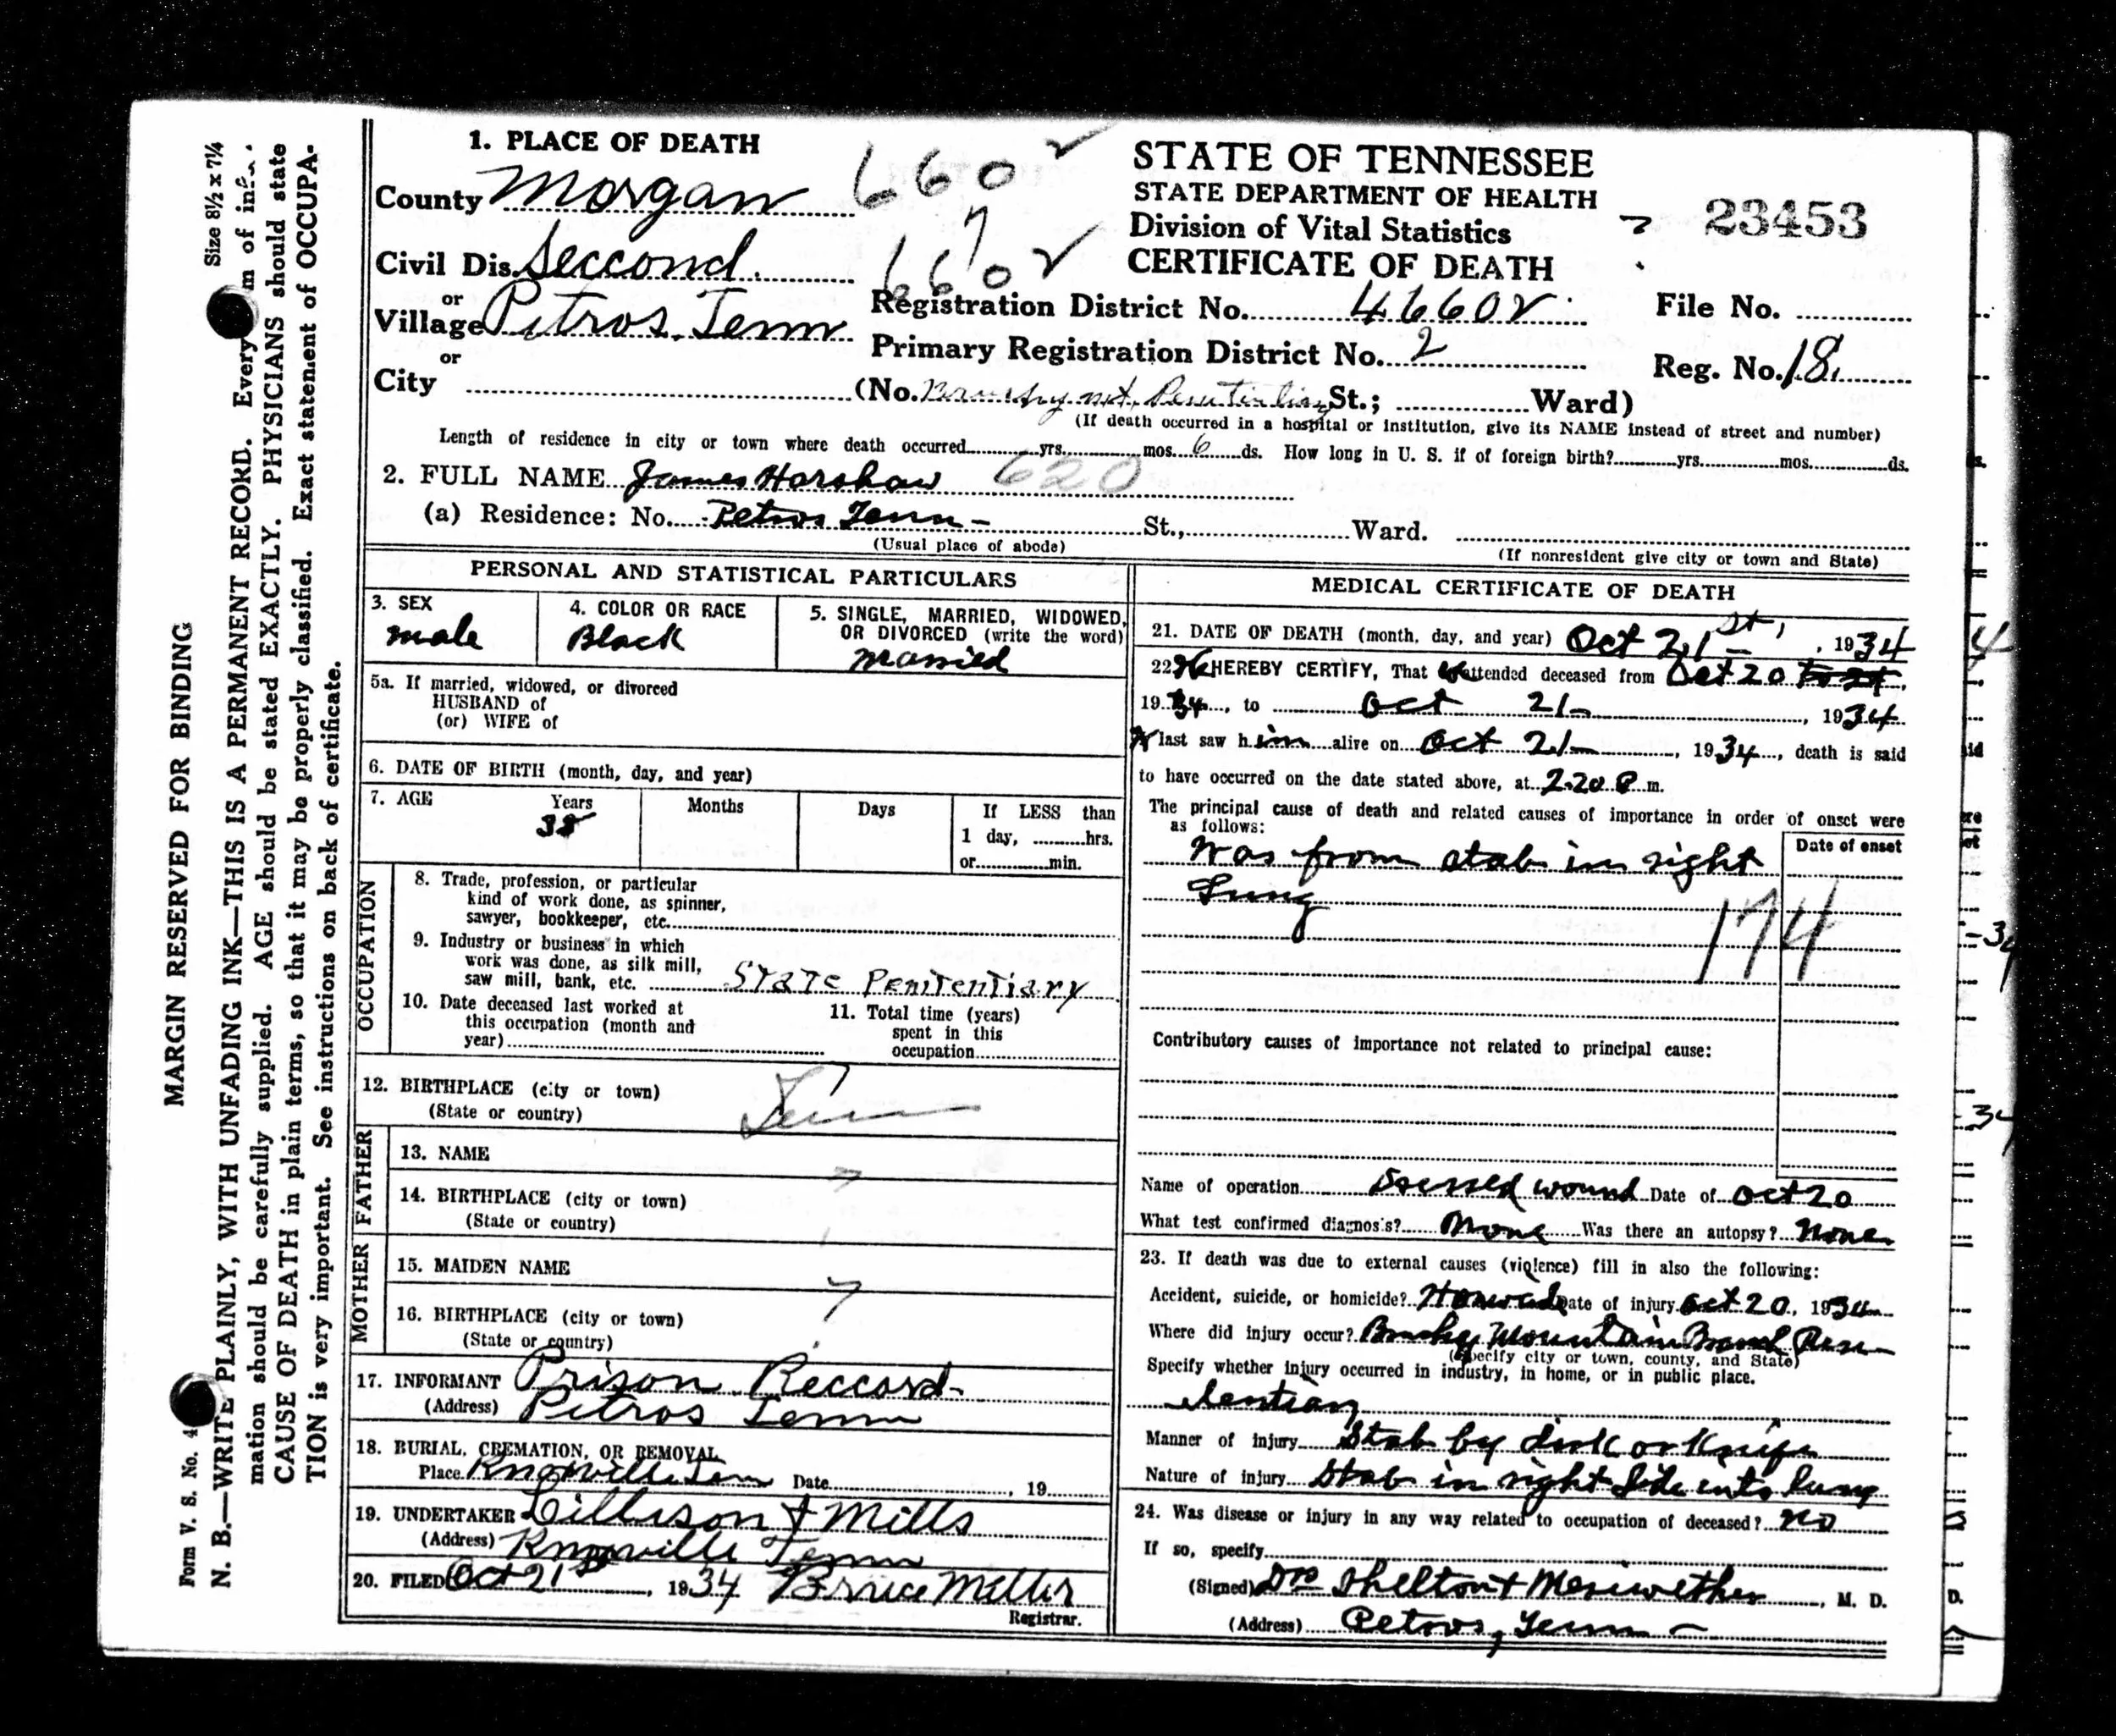 MARGIN RESERVED FOR BINDING
Size 8½ x 7¼
N. B.—WRITE PLAINLY, WITH UNFADING INK—THIS IS A PERMANENT RECORD. Every of
mation should be carefully supplied. AGE should be stated EXACTLY. PHYSICIANS should state
CAUSE OF DEATH in plain terms, so that it may be properly classified. Exact statement of OCCUPA-
TION is very important. See instructions on back of certificate.
Form V. S. No. 4
1. PLACE OF DEATH
County Morgan 660
Civil Dis. Seccond.
or
Village Petros. Tenn
or
City
STATE OF TENNESSEE
STATE DEPARTMENT OF HEALTH
Division of Vital Statistics
CERTIFICATE OF DEATH
23453
Registration District No. 46602 File No.
Primary Registration District No. 2 Reg. No. 18.
(No. Brushy mt. St.; Ward)
(If death occurred in a hospital or institution, give its NAME instead of street and number)
Length of residence in city or town where death occurred yrs. mos. 6 ds. How long in U. S. if of foreign birth? yrs. mos. ds.
2. FULL NAME James Harshaw 620
(a) Residence: No. Petros Tenn - St., Ward.
(Usual place of abode) (If nonresident give city or town and State)
PERSONAL AND STATISTICAL PARTICULARS
3. SEX
male
4. COLOR OR RACE
Black
5. SINGLE, MARRIED, WIDOWED, OR DIVORCED (write the word)
Married
5a. If married, widowed, or divorced
HUSBAND of
(or) WIFE of
6. DATE OF BIRTH (month, day, and year)
7. AGE Years Months Days If LESS than
1 day, hrs.
or min.
OCCUPATION
8. Trade, profession, or particular
kind of work done, as spinner,
sawyer, bookkeeper, etc.
9. Industry or business in which
work was done, as silk mill,
saw mill, bank, etc. STATE PENITENTIARY
10. Date deceased last worked at
this occupation (month and
year)
11. Total time (years)
spent in this
occupation
12. BIRTHPLACE (city or town)
(State or country) Tenn
FATHER
13. NAME
14. BIRTHPLACE (city or town)
(State or country)
MOTHER
15. MAIDEN NAME
16. BIRTHPLACE (city or town)
(State or country)
17. INFORMANT Prison Reccord-
(Address) Petros Tenn
18. BURIAL, CREMATION, OR REMOVAL
Place Knoxville Tenn Date , 19
19. UNDERTAKER & Mills
(Address) Knoxville Tenn
20. FILED Oct 21st, 1934 Bruce Miller
Registrar.
MEDICAL CERTIFICATE OF DEATH
21. DATE OF DEATH (month, day, and year) Oct 21st, 1934
22. We HEREBY CERTIFY, That We attended deceased from Oct 20
1934, to Oct 21-, 1934
last saw him alive on Oct 21-, 1934, death is said
to have occurred on the date stated above, at 2.20 P m.
The principal cause of death and related causes of importance in order of onset were
as follows:
Date of onset
Was from stab in right
Lung
174
Contributory causes of importance not related to principal cause:
Name of operation Dressed wound Date of Oct 20
What test confirmed diagnosis? None Was there an autopsy? None
23. If death was due to external causes (violence) fill in also the following:
Accident, suicide, or homicide? Date of injury Oct 20, 1934
Where did injury occur? Brushy Mountain Branch
(Specify city or town, county, and State)
Specify whether injury occurred in industry, in home, or in public place.
Manner of injury Stab by dirk or Knife
Nature of injury Stab in right Side into lung
24. Was disease or injury in any way related to occupation of deceased? No
If so, specify
(Signed) Drs Shelton & Meriwether, M. D.
(Address) Petros, Tenn -